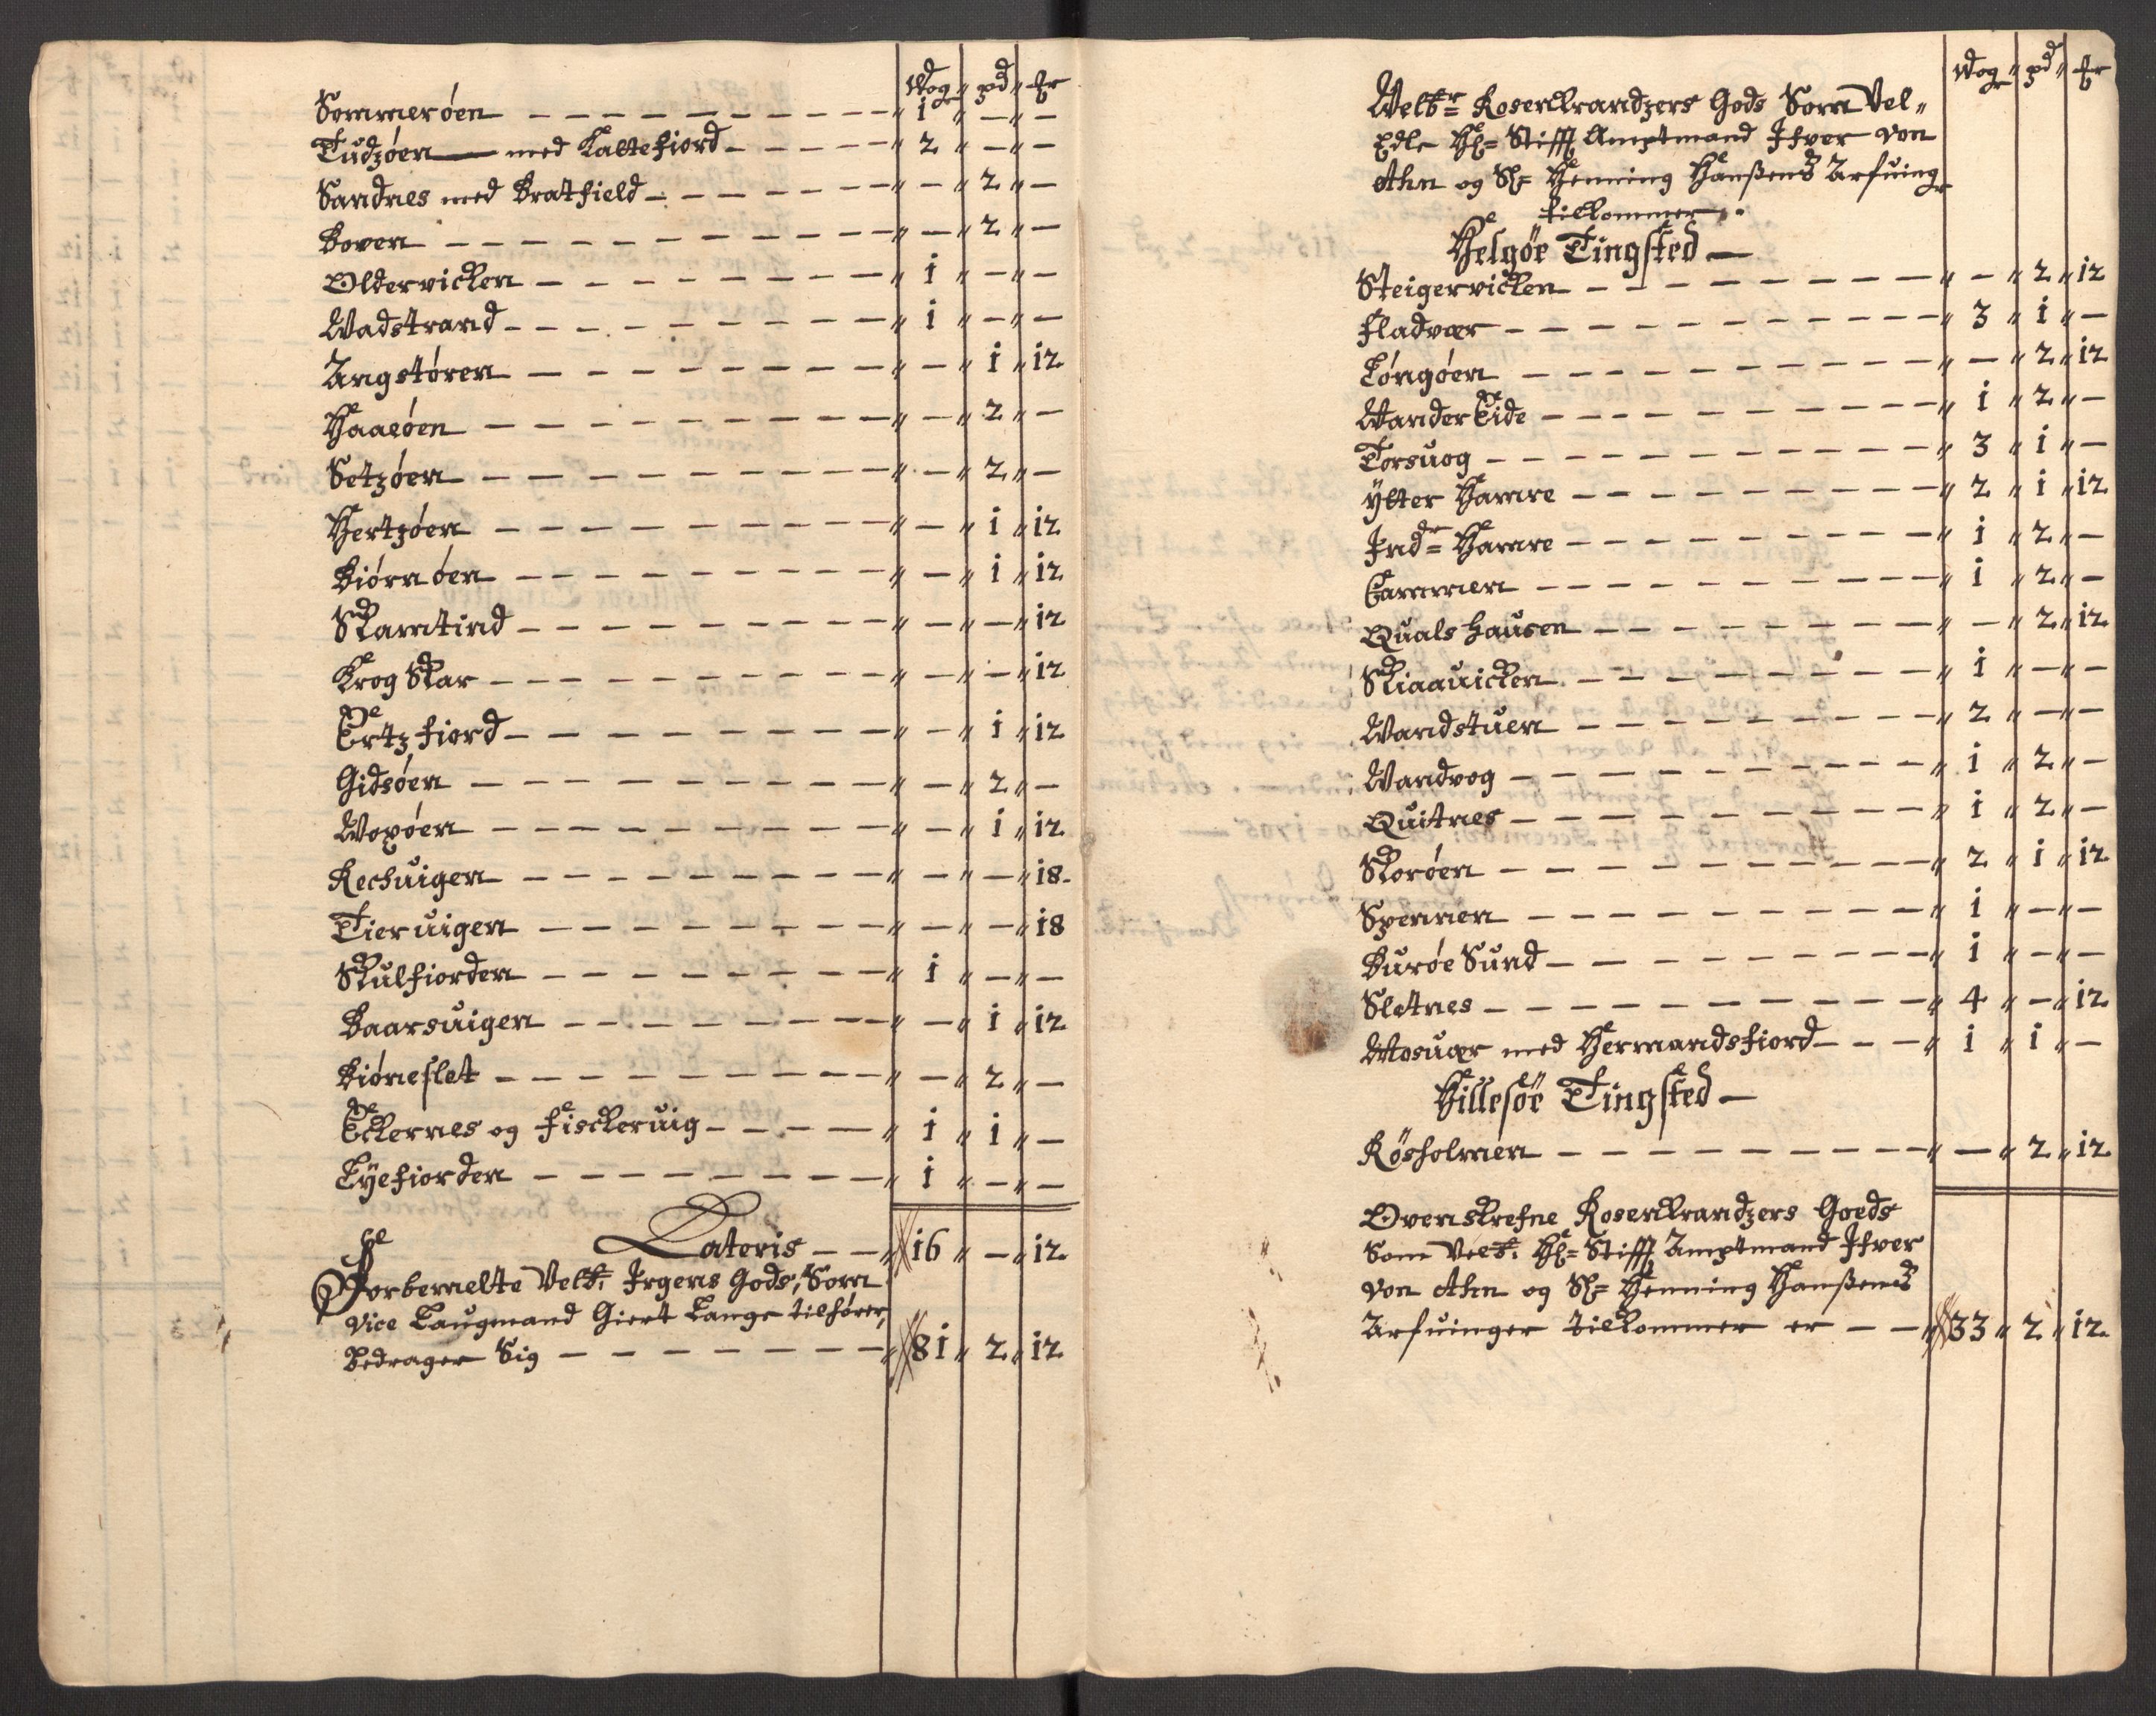 Wog " pd " ℔r
Sommerøen — — — — — " 1 " — " —
Tudzøen — med Kaltefiord — — — " 2 " — " —
Sandnes med Bratfield — — — " — " 2 " —
Boven — — — — — " — " 2 " —
Oldervicken — — — — — " 1 " — " —
Wadstrand — — — — — " 1 " — " —
Angstøren — — — — — " — " 1 " 12
Haaeøen — — — — — " — " 2 " —
Setzøen — — — — — " — " 2 " —
Hertzøen — — — — — " — " 1 " 12
Biørnøen — — — — — " — " 1 " 12
Skamtind — — — — — " — " — " 12
Krog Skar — — — — — " — " — " 12
Ertzfiord — — — — — " — " 1 " 12
Gidsøen — — — — — " — " 2 " —
Woxøen — — — — — " — " 1 " 12
Rechuigen — — — — — " — " — " 18
Tieruigen — — — — — " — " — " 18
Skulfiorden — — — — — " 1 " — " —
Baarsuigen — — — — — " — " 1 " 12
Biørneslet — — — — — " — " 2 " —
Eckernes og Fischeruig — — — " 1 " 1 " —
Lyefiorden — — — — — " 1 " — " —
Lateris — — " 16 " — " 12
Forbemelte Velb: Irgens Gods, Som
Vice Laugmand Giert Lange tilhører,
Bedrager Sig — — — — — " 81 " 2 " 12
Wog " pd " ℔r
Welbr= Rosenkrandzers Gods Som Vel"
Edle Hr= Stifft Amptmand Ifver von
Ahn og Sl= Henning Hanßens Arfuing
tilkommer
Helgøe Tingsted —
Steigervicken — — — — — " — " 2 " 12
Fladvær — — — — — " 3 " 1 " —
Løngøen — — — — — " — " 2 " 12
Wander Eide — — — — — " 1 " 2 " —
Torsuog — — — — — " 3 " 1 " —
Ytter Hamre — — — — — " 2 " 1 " 12
Indr= Hamre — — — — — " 1 " 2 " —
Cammen — — — — — " 1 " 2 " —
Qualshausen — — — — — " — " 2 " 12
Skiaauicken — — — — — " 1 " — " —
Wandstuen — — — — — " 2 " — " —
Wandvog — — — — — " 1 " 2 " —
Quitnes — — — — — " 1 " 2 " —
Skorøen — — — — — " 2 " 1 " 12
Spennen — — — — — " 1 " — " —
Burøe Sund — — — — — " 1 " — " —
Sletnes — — — — — " 4 " — " 12
Mosuær med Hermandsfiord — — — " 1 " 1 " —
Hillesøe Tingsted —
Røsholmen — — — — — " — " 2 " 12
Ovenskrefne Rosenkrandzers Goeds
Som Velb: Hr= Stifft Amptmand Ifver
von Ahn og Sl= Henning Hanßens
Arfuinger tilkommer er — — " 33 " 2 " 12